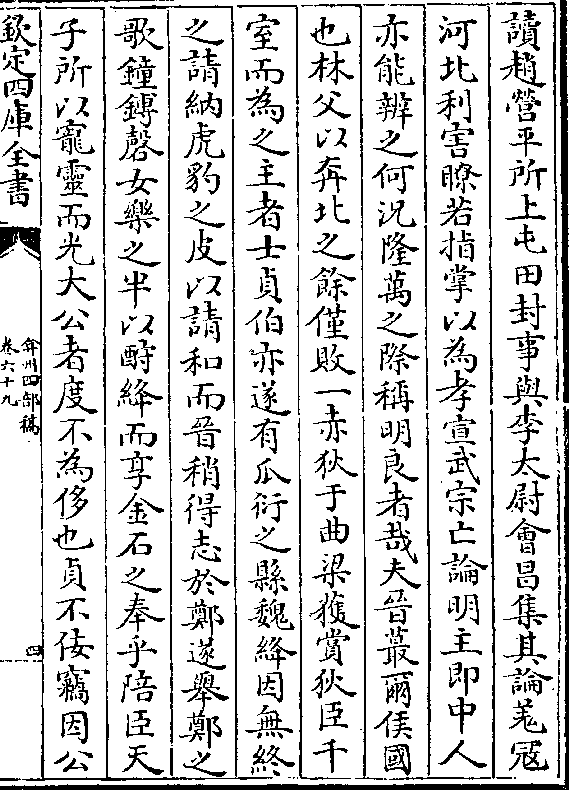 讀趙營平所上屯田封事與李太尉會昌集其論羗冦
河北利害瞭若指掌以為孝宣武宗亡論明主即中人
亦能辨之何況隆萬之際稱明良者哉夫晉蕞爾侯國
也林父以奔北之餘僅敗一赤狄于曲梁獲賞狄臣千
室而為之主者士貞伯亦遂有瓜衍之縣魏絳因無終
之請納虎豹之皮以請和而晉稍得志於鄭遂舉鄭之
歌鐘鏄磬女樂之半以酧絳而享金石之奉乎陪臣天
子所以寵靈而光大公者度不為侈也貞不佞竊因公
欽定四庫全書
弇州四部稿
卷六十九
四